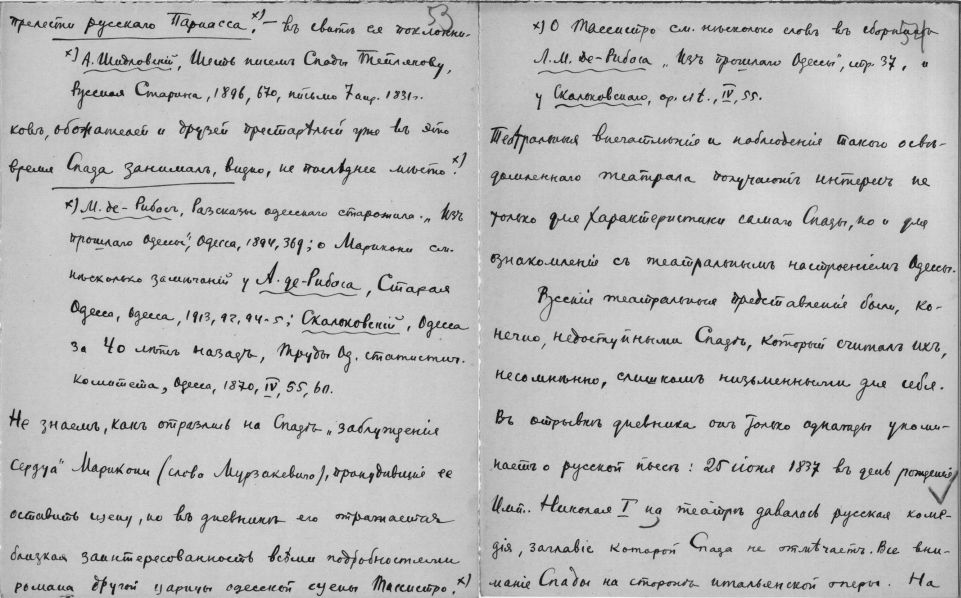 53
прелести русскаго Парнасса."х) – въ свитѣ ея поклонни-
х) А. Шидловскій, Шесть писемъ Спады Тейлякову,
Русская Старина, 1896, 670, письмо 7 апр. 1831 г.
ковъ, обожателей и друзей престарѣлый уже въ это
время Спада занималъ, видно, не послѣднее мѣсто.х)
х) М. де-Рибасъ, Разсказы одесскаго старожила. "Изъ
прошлаго Одессы", Одесса, 1894, 369; о Марикони см.
нѣсколько замѣчаній у А. де-Рибаса, Старая
Одесса, Одесса, 1913, 92, 94-5; Скальковскій, Одесса
за 40 лѣтъ назадъ, Труды Од. статистич.
комитета, Одесса, 1870, IV, 55, 60.
Не знаемъ, какъ отразились на Спадѣ "заблужденія
сердца" Марикони (слово Мурзакевича), принудившіе ее
оставить сцену, но въ дневникѣ его отражается
близкая заинтересованность всѣми подробностями
романа другой царицы одесской сцены Тассистро.х)
54
х) О Тассистро см. нѣсколько словъ въ сборникѣ
Л. М. де-Рибаса "Изъ прошлаго Одессы", стр. 37, и
у Скальковскаго, op. cit., IV, 55.
Театральныя впечатлѣнія и наблюденія такого освѣ-
домленнаго театрала получаютъ интересъ не
только для характеристики самаго Спады, но и для
ознакомленія съ театральнымъ настроеніемъ Одессы.
Русскія театральныя представленія были, ко-
нечно, недоступными Спадѣ, который считалъ ихъ,
несомнѣнно, слишкомъ низьменными для себя.
Въ отрывкѣ дневника онъ только однажды упоми-
наетъ о русской пьесѣ: 25 іюня 1837 въ день рожденія
Имп. Николая I на театрѣ давалась русская коме-
дія, заглавіе которой Спада не отмѣчаетъ. Все вни-
маніе Спады на сторонѣ итальянской оперы. На